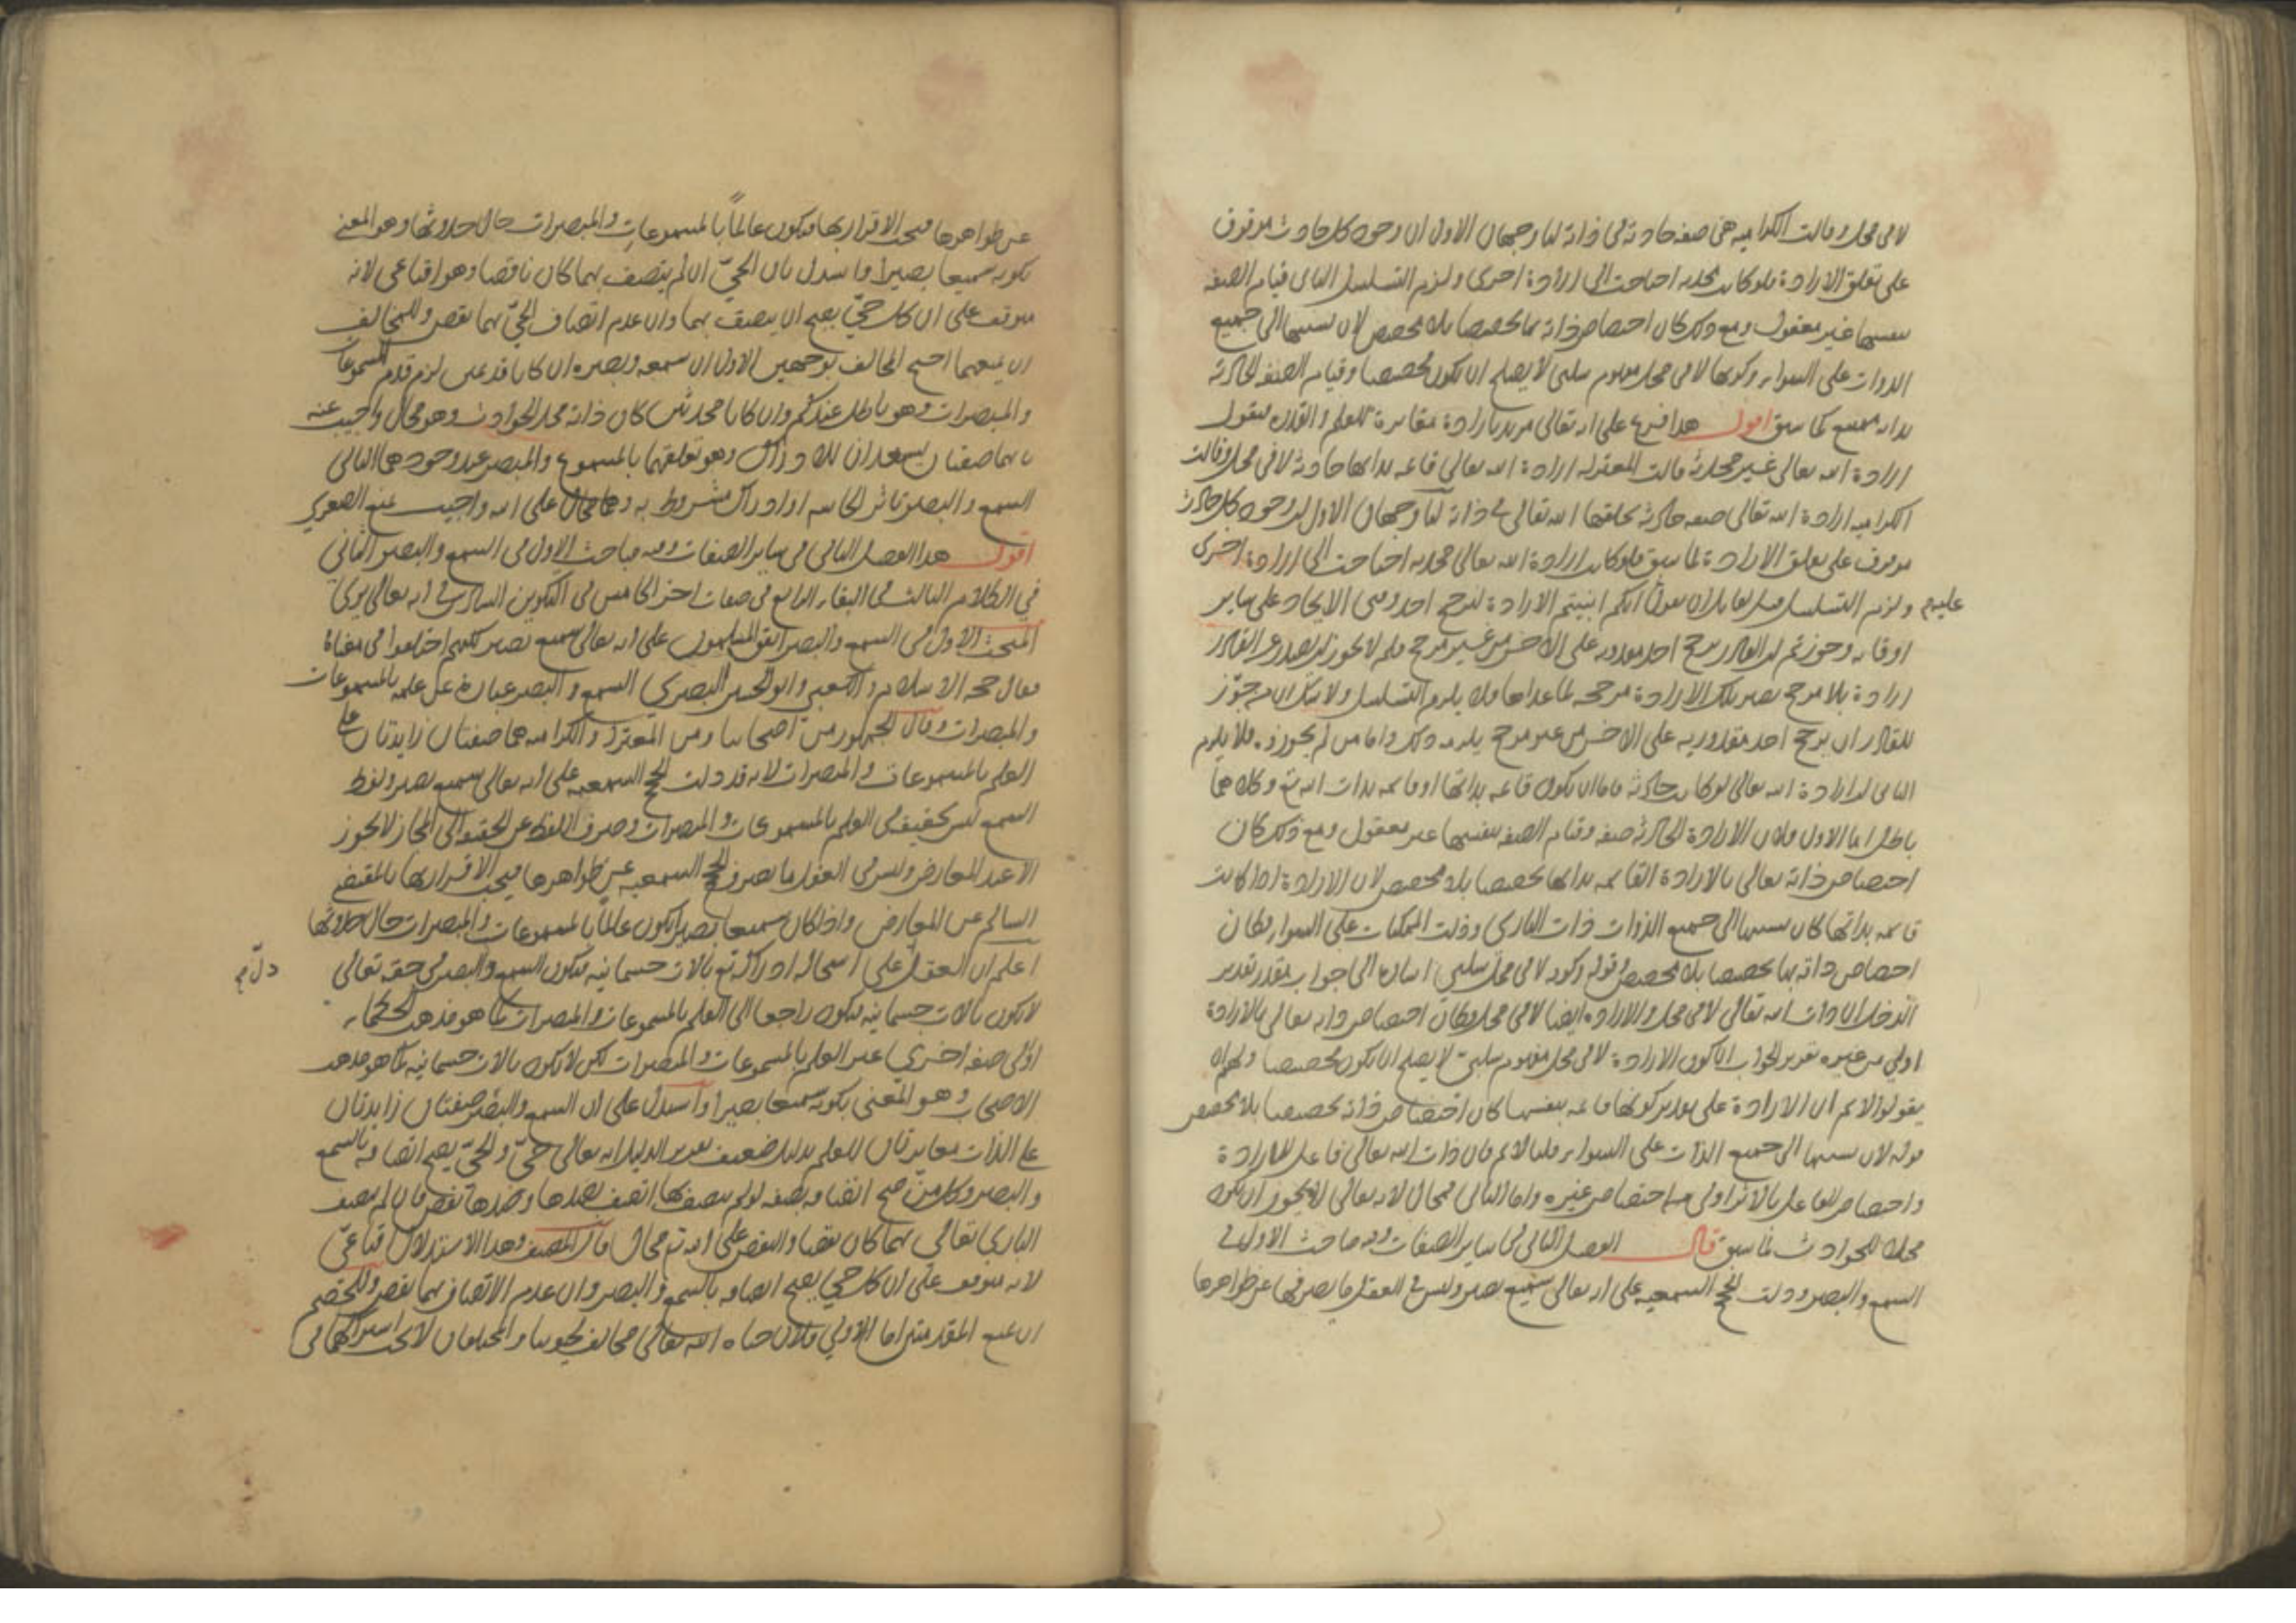 لا في محل وقالت الكراميه هي صفه حادثة في ذاته لنا وجهان الاول ان وجود كل حادث موقوف
على تعلق الارادة فلو كانت محدثه احتاجت الى ارادة اخرى ولزم التسلسل الثاني قيام الصفه
بنفسها غير معقول ومع ذلك كان اختصاص ذاته بها تخصيصا بلا مخصص لان نسبتها الى جميع
الذوات على السواء وكونها لا في محل مفهوم سلبي لا يصلح ان يكون مخصصا وقيام الصفه الحادثة
بذاته ممتنع كما سبق اقول هذا فرع على انه تعالى مريد بارادة مغايرة للعلم والقدرة فنقول
ارادة الله تعالى غير محدثه قالت المعتزله ارادة الله تعالى قائمه بذاتها حادثه لا في محل وقالت
الكراميه ارادة الله تعالى صفه حادثه يخلقها الله تعالى في ذاته لنا وجهان الاول ان وجود كل حادث
موقوف على تعلق الارادة لما سبق فلو كانت ارادة الله تعالى محدثه احتاجت الى ارادة اخرى
ولزم التسلسل ولقايل ان يقول انكم اثبتم الارادة لترجح احد وقتي الايجاد على ساير
عليه
اوقاته وجوزتم ان القادر يرجح احد مقدوريه على الاخر من غير مرجح فلم لا يجوز ان يصدر عن القادر
ارادة بلا مرجح تصير تلك الارادة مرجحه لما عداها ولا يلزم التسلسل ولا شك ان من جوّز
للقادر ان يرجح احد مقدوريه على الاخر من غير مرجح يلزمه ذلك واما من لم يجوزه فلا يلزم
الثاني ان ارادة الله تعالى لو كانت حادثه فاما ان يكون قائمه بذاتها او قائمه بذات الله تع وكلاهما
باطل اما الاول فلان الارادة الحادثه صفه وقيام الصفه بنفسها غير معقول ومع ذلك كان
اختصاص ذاته تعالى بالارادة القائمه بذاتها تخصيصا بلا مخصص لان الارادة اذا كانت
قائمه بذاتها كان نسبتها الى جميع الذوات ذات الباري وذوات الممكنات على السواء وكان
اختصاص ذاته بها تخصيصا بلا مخصص وقوله وكونه لا في محل سلبي اشارة الى جواب مقدر تقدير
الدخل ان ذات الله تعالى لا في محل والارادة ايضا لا في محل وكان اختصاص ذاته تعالى بالارادة
اولي من غيره تقرير الجواب ان كون الارادة لا في محل مفهوم سلبي لا يصلح ان يكون مخصصا ولهم ان
يقولوا لا نم ان الارادة على تقدير كونها قائمه بنفسها كان اختصاص ذاته تخصيصا بلا مخصص
قوله لان نسبتها الى جميع الذوات على السواء قلنا لا نم فان ذات الله تعالى فاعل للارادة
واختصاص الفاعل بالاثر اولى من اختصاص غيره واما الثاني فمحال لانه تعالى لا يجوز ان يكون
محلا للحوادث لما سبق قال الفصل الثاني في ساير الصفات وفيه مباحث الاول في
السمع والبصر ودلت الحجج السمعيه على انه تعالى سميع بصير وليس في العقل ما يصرفها عن ظواهرها
عن ظواهرها فيجب الاقرار بها فيكون عالماً بالمسموعات والمبصرات حال حدوثها وهو المعني
بكونه سميعا بصيرا واستدل بان الحيّ ان لم يتصف بهما كان ناقصا وهو اقناعي لانه
متوقف على ان كل حيّ يصح ان يتصف بهما وان عدم اتصاف الحيّ بهما نقص وللمخالف
ان يمنعهما احتج المخالف بوجهين الاول ان سمعه وبصره ان كانا قديمين لزم قدم المسموعات
والمبصرات وهو باطل عندكم وان كانا محدثين كان ذاته محل الحوادث وهو محال واجيب عنه
بانهما صفتان يستعدان للادراك وهو تعلقهما بالمسموع والمبصر عند وجودهما الثاني
السمع والبصر تاثر الحاسه او ادراك مشروط به وهما محال على الله واجيب بمنع الصغرى
اقول هذا الفصل الثاني في ساير الصفات وفيه مباحث الاول في السمع والبصر الثاني
في الكلام الثالث في البقاء الرابع في صفات اخر الخامس في التكوين السادس في انه تعالى يرى
المبحث الاول في السمع والبصر اتفق المسلمون على انه تعالى سميع بصير لكنهم اختلفوا في معناه
فقال حجه الاسلام والكعبي وابو الحسين البصري السمع والبصر عبارة عن علمه بالمسموعات
والمبصرات وقال الجمهور من اصحابنا ومن المعتزله والكراميه هما صفتان زايدتان على
العلم بالمسموعات والمبصرات لانه قد دلت الحجج السمعيه على انه تعالى سميع بصير ولفظ
السمع ليس حقيقه في العلم بالمسموعات والمبصرات وصرف اللفظ عن الحقيقه الى المجاز لا يجوز
الا عند المعارض وليس في العقل ما يصرف الحجج السمعيه عن ظواهرها فيجب الاقرار بها بالمقتضي
السالم عن المعارض واذا كان سميعا بصيرا يكون عالماً بالمسموعات والمبصرات حال حدوثها
اعلم ان العقل على استحاله ادراكه تع بالات جسمانيه فيكون السمع والبصر في حقه تعالى
دلّ صح
لا يكون بالات جسمانيه فيكون راجعا الى العلم بالمسموعات والمبصرات كما هو مذهب الحكماء
او الى صفه اخري غير العلم بالمسموعات والمبصرات لكن لا يكون بالات جسمانيه كما هو مذهب
الاصحاب وهو المعني بكونه سميعا بصيرا واستدل على ان السمع والبصر صفتان زايدتان
على الذات مغايرتان للعلم بدليل ضعيف تقرير الدليل انه تعالى حيّ والحيّ يصح اتصافه بالسمع
والبصر وكل من صح اتصافه بصفه لو لم يتصف بها اتصف بضدها وضدها نقص فان لم يتصف
الباري تعالى بهما كان نقصا والنقص على الله تع محال قال المصنف وهذا الاستدلال اقناعيّ
لانه متوقف على ان كل حي يصح اتصافه بالسمع والبصر وان عدم الاتصاف بهما نقص وللخصم
ان يمنع المقدمتين اما الاولي فلان حياه الله تعالى مخالف لحيوتنا والمختلفان لا يجب اشتراكهما في